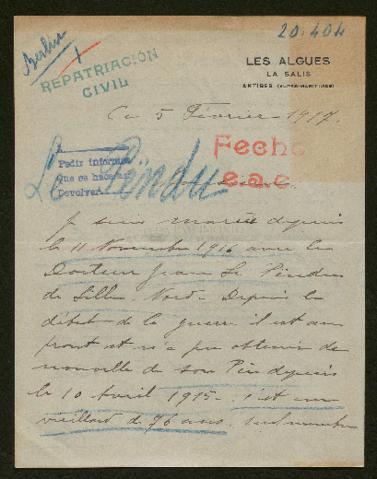 20.404
Berlin
1
REPATRIACIÓN
CIVIL
LES ALGUES
LA SALIS
ANTIBES (ALPES-MARITIMES)
Ce 5 Février 1917.
Fecho
e.a.c.
Pedir informes
Que se haga
Devolver
Le Pendu
Je suis mariée depuis
le 11 Novembre 1916 avec le
Docteur Jean Le Pendu
de Lille. Nord. Depuis le
début de la guerre il est au
front et n'a pu obtenir de
nouvelle de son Père depuis
le 10 Avril 1915. C'est un
vieillard de 76 ans